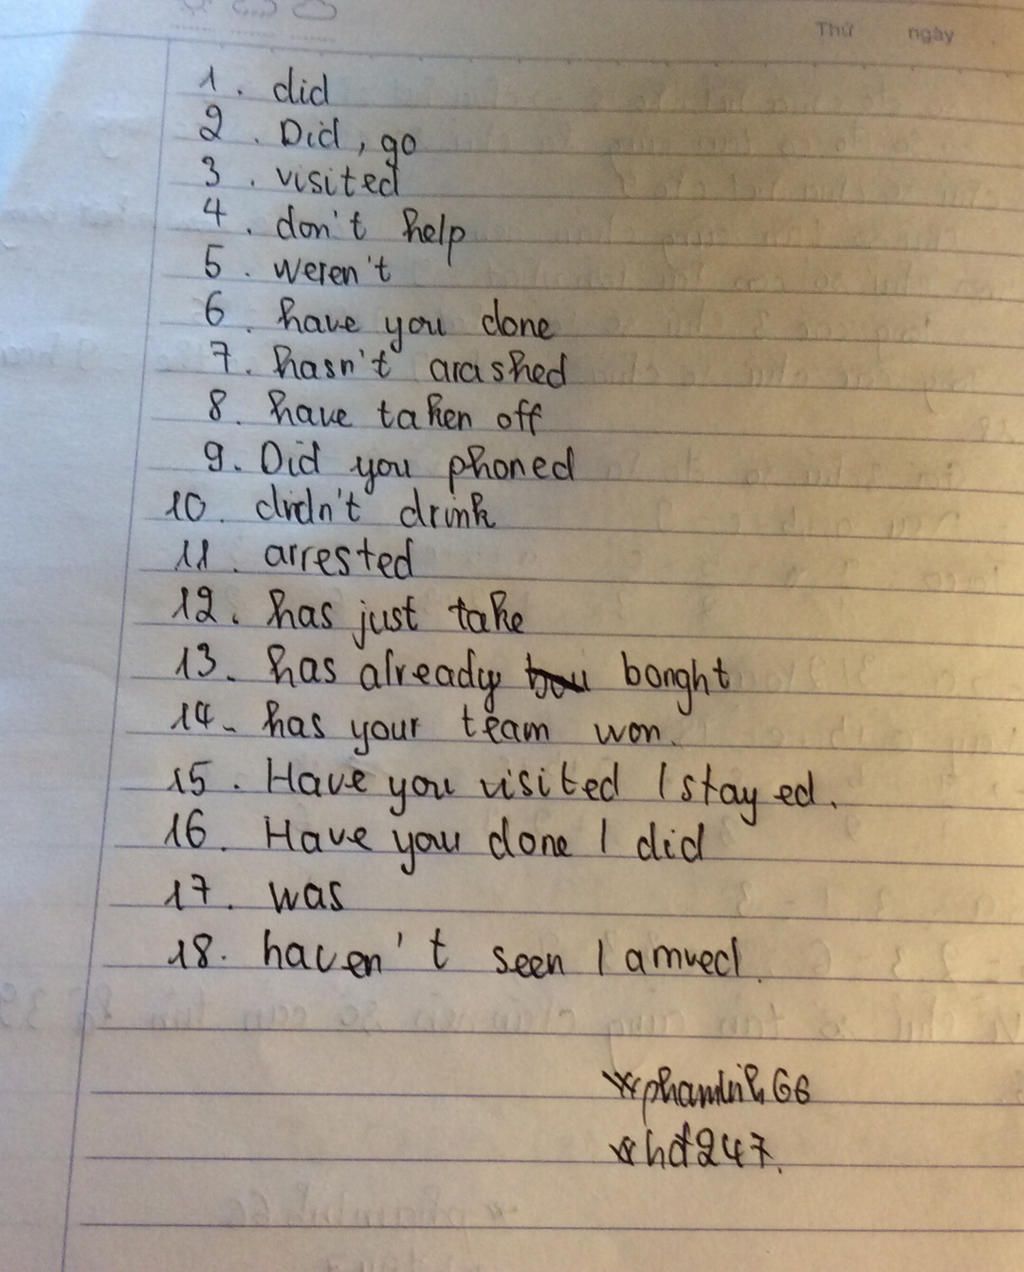 Thứ ngày
1. did
2. Did, go
3. visited
4. don't help
5. weren't
6. have you done
7. hasn't arashed
8. have taken off
9. Did you phoned
10. didn't drink
11. arrested
12. has just take
13. has already bou bonght
14. has your team won.
15. Have you visited / stayed.
16. Have you done / did
17. was
18. haven't seen / amved.
*phamlinh66
*hdt247.